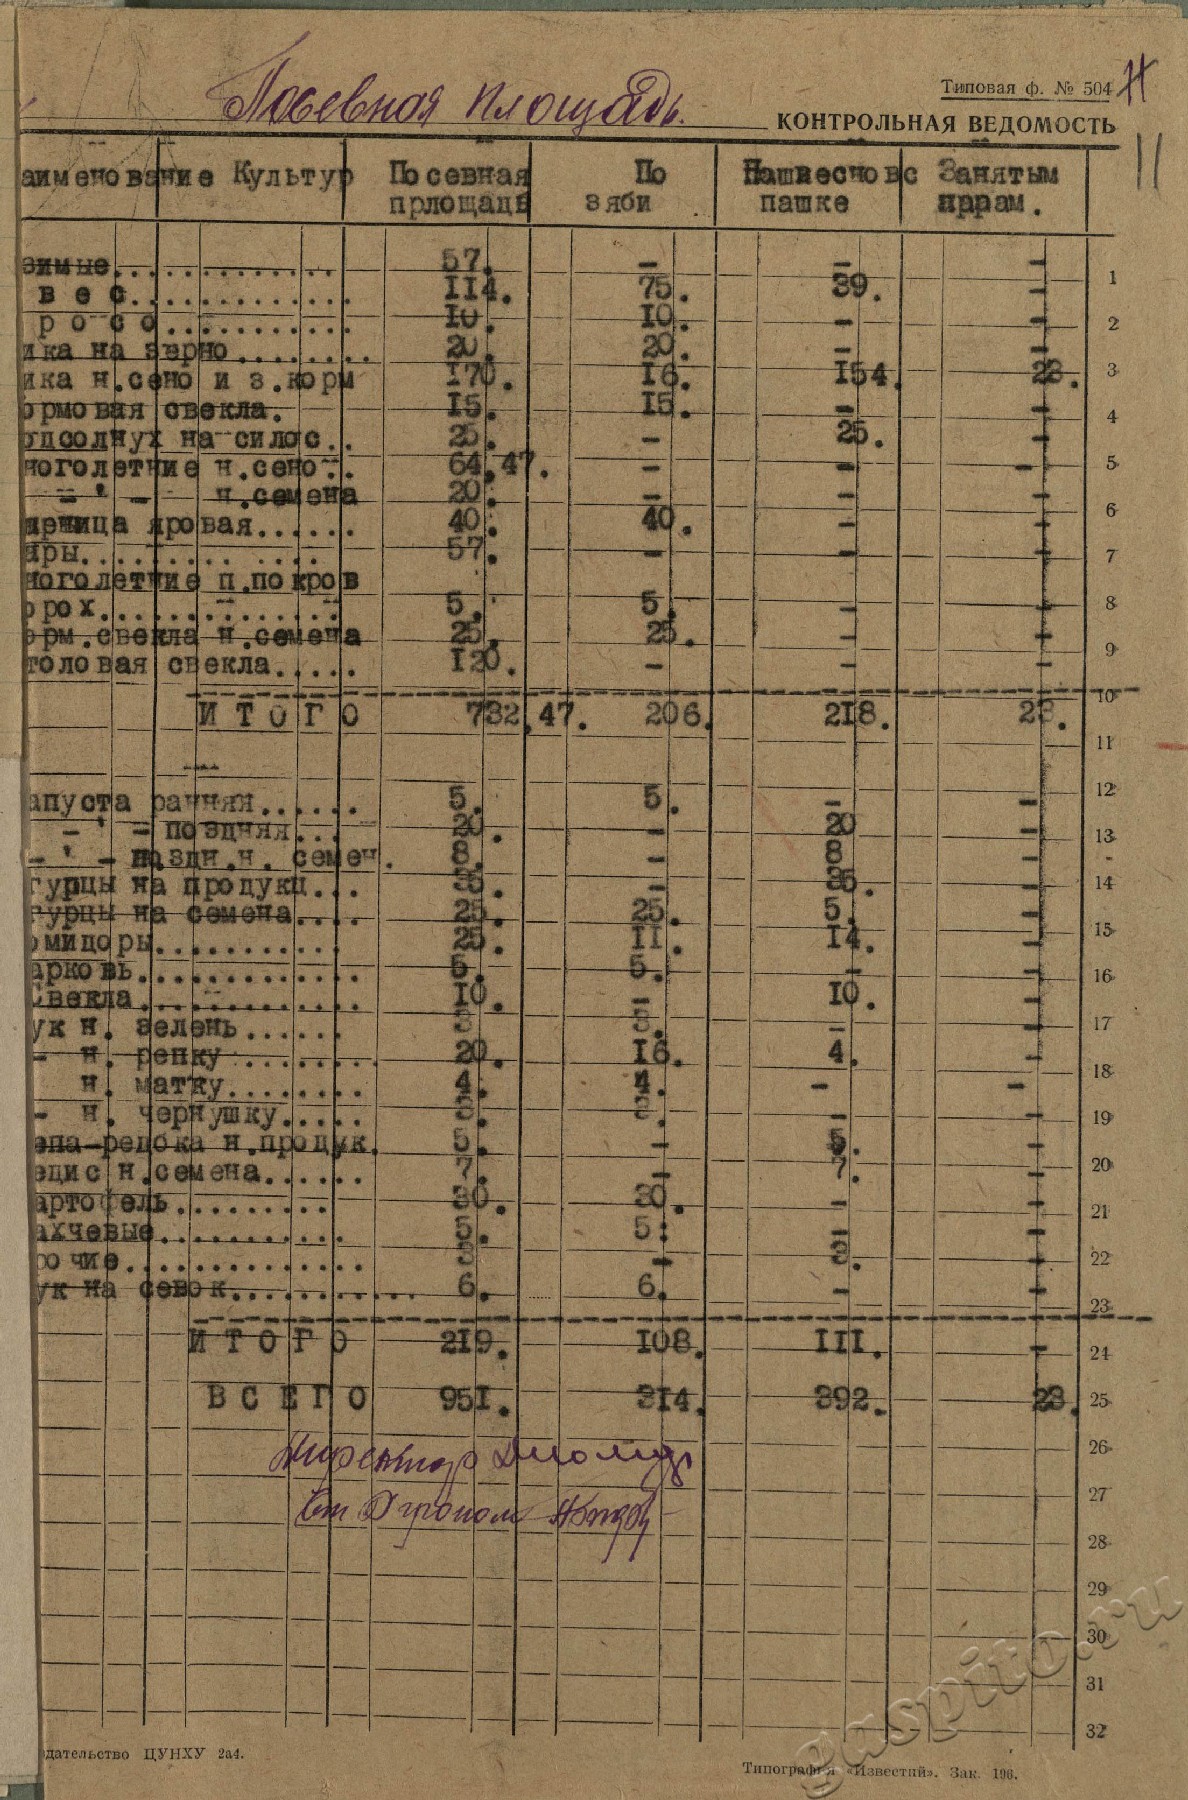 Типовая ф. № 504
11
Посевная площадь.
КОНТРОЛЬНАЯ ВЕДОМОСТЬ
11
аименование Культур Посевная По Нашвесновс Занятым
прлощадь зяби пашке прарам.
зимые............. 57. – – – 1
вес............. 114. 75. 39. –
росо........... 10. 10. – – 2
ика на зерно........ 20. 20. – –
ика н.сено и з.корм 170. 16. 154. 23. 3
ормовая свекла. 15. 15. – – 4
одсолнух на силос.. 25. – 25. –
ноголетние н.сено... 64,47. – – – 5
– " – н.семена 20. – – –
шеница яровая...... 40. 40. – – 6
ары............. 57. – – – 7
ноголетние п.покров
орох............. 5. 5. – – 8
орм.свекла н.семена 25. 25. – –
толовая свекла..... 120. – – – 9
10
ИТОГО 732,47. 206. 218. 23.
11
апуста ранняя...... 5. 5. – – 12
– " – поздняя... 20. – 20 – 13
– " – поздн.н. семен. 8. – 8 –
гурцы на продукц... 35. – 35. – 14
гурцы на семена.... 25. 25. 5. –
омидоры........... 25. 11. 14. – 15
арковь............. 5. 5. – – 16
Свекла............. 10. – 10. –
ук н. зелень...... 3. 3. – – 17
– н. репку ........ 20. 16. 4. –
н. матку........ 4. 4. – – 18
– н. чернушку..... 3. 3. – – 19
епа-редька н.продук. 5. – 5. –
едис н.семена...... 7. – 7. – 20
артофель......... 30. 30. – – 21
ахчевые........... 5. 5. – –
рочие.............. 3 – 3. – 22
ук на севок........... 6. 6. – –
23
ИТОГО 219. 108. 111. – 24
ВСЕГО 951. 314. 392. 23. 25
Директор
26
Ст Агроном
27
28
29
30
31
32
здательство ЦУНХУ 2а4.
Типография «Известий». Зак. 196.
gaspito.ru